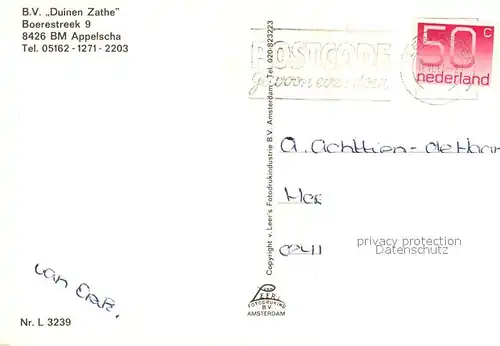 B.V. „Duinen Zathe"
Boerestreek 9
8426 BM Appelscha
Tel. 05162 - 1271 - 2203
POSTCODE
gewoon even doen
50 c
nederland
Copyright v. Leer's Fotodrukindustrie B.V. Amsterdam Tel. 020-823223
A. Achttien - de Haan
privacy protection
Datenschutz
van
LEER'S
FOTODRUKIND
B.V
AMSTERDAM
Nr. L 3239